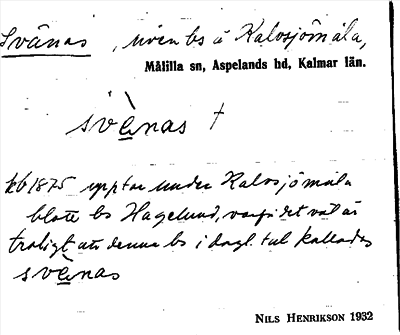 Svänas, även bs å Kalvsjömåla,
Målilla sn, Aspelands hd, Kalmar län.
svä̀nas †
kb 1875 upptar under Kalvsjömåla
blott bs Hagelund, varför det väl är
troligt att denna bs i dagl. tal kallades
svä̀nas
NILS HENRIKSON 1932